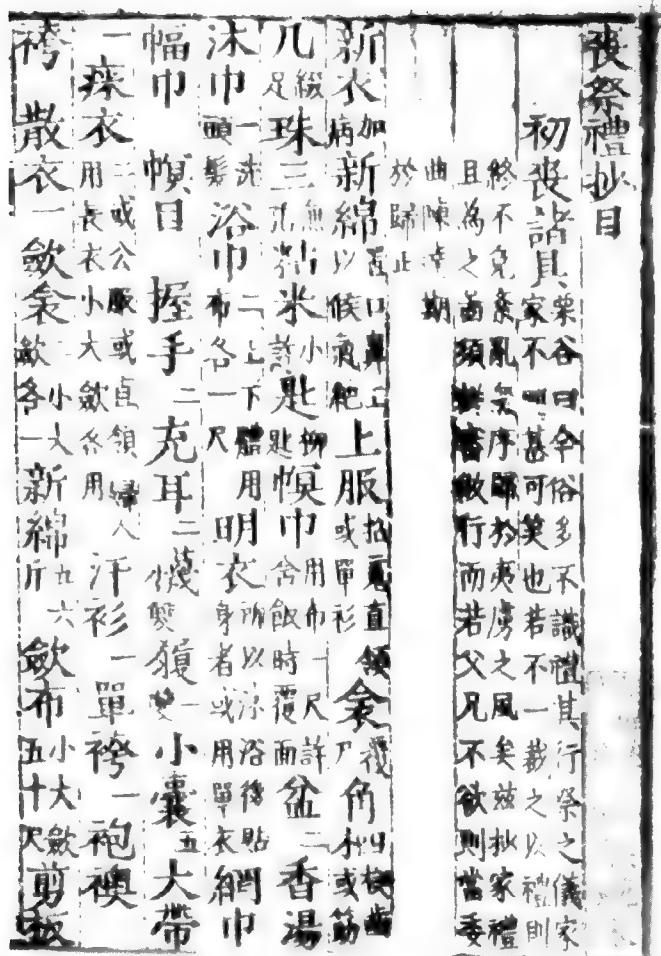 喪祭禮抄目
初喪諸具栗谷曰今俗多不識禮其行祭之儀家
家不同甚可笑也若不一裁之以禮則
終不免紊亂無序歸於夷虜之風矣玆抄家禮
且為之圖須詳審倣行而若父兄不欲則當委
曲陳達期
於歸正
新衣加病新綿置口鼻上以候氣絶上服招魂直領或單衫衾覆尸角柶楔齒或筯
几綴足珠三無孔粘米小許匙柳匙幎巾用布一尺許含飯時覆面盆二香湯
沐巾一洗頭髮浴巾二上下體用布各一尺明衣所以沐浴後貼身者或用單衣網巾
幅巾幎目握手二充耳二襪一雙履一雙小囊五大帶
一衣或公服或直領婦人用長衣小大斂各用汗衫一單袴一袍襖
袴散衣一斂衾二小大斂各一新綿五六斤斂布小大斂五十尺剪板